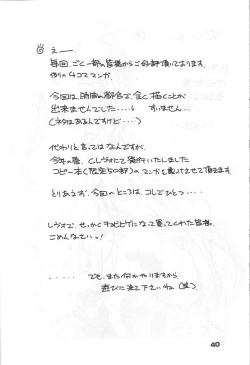 え━━.
毎回、ごく一部の皆様からご好評頂いております、
例の4コママンガ.
今回は、時間の都合で、全く描くことが
出来ませんでした・・・・。 すいません…
(ネタはあるんですけど・・・・)
代わりと言ってはなんですが、
今年の春、Cレヴォにて発行いたしました
コピー本(限定50部)のマンガを載せさせて頂きます
とりあえず、今回のところは、コレでひとつ・・・・
レヴォで、せっかく並んで買ってくれた皆様、
ごめんなさいっ!
・・・・・ でも、また何かやりますから、
遊びに来て下さいね(笑).
40